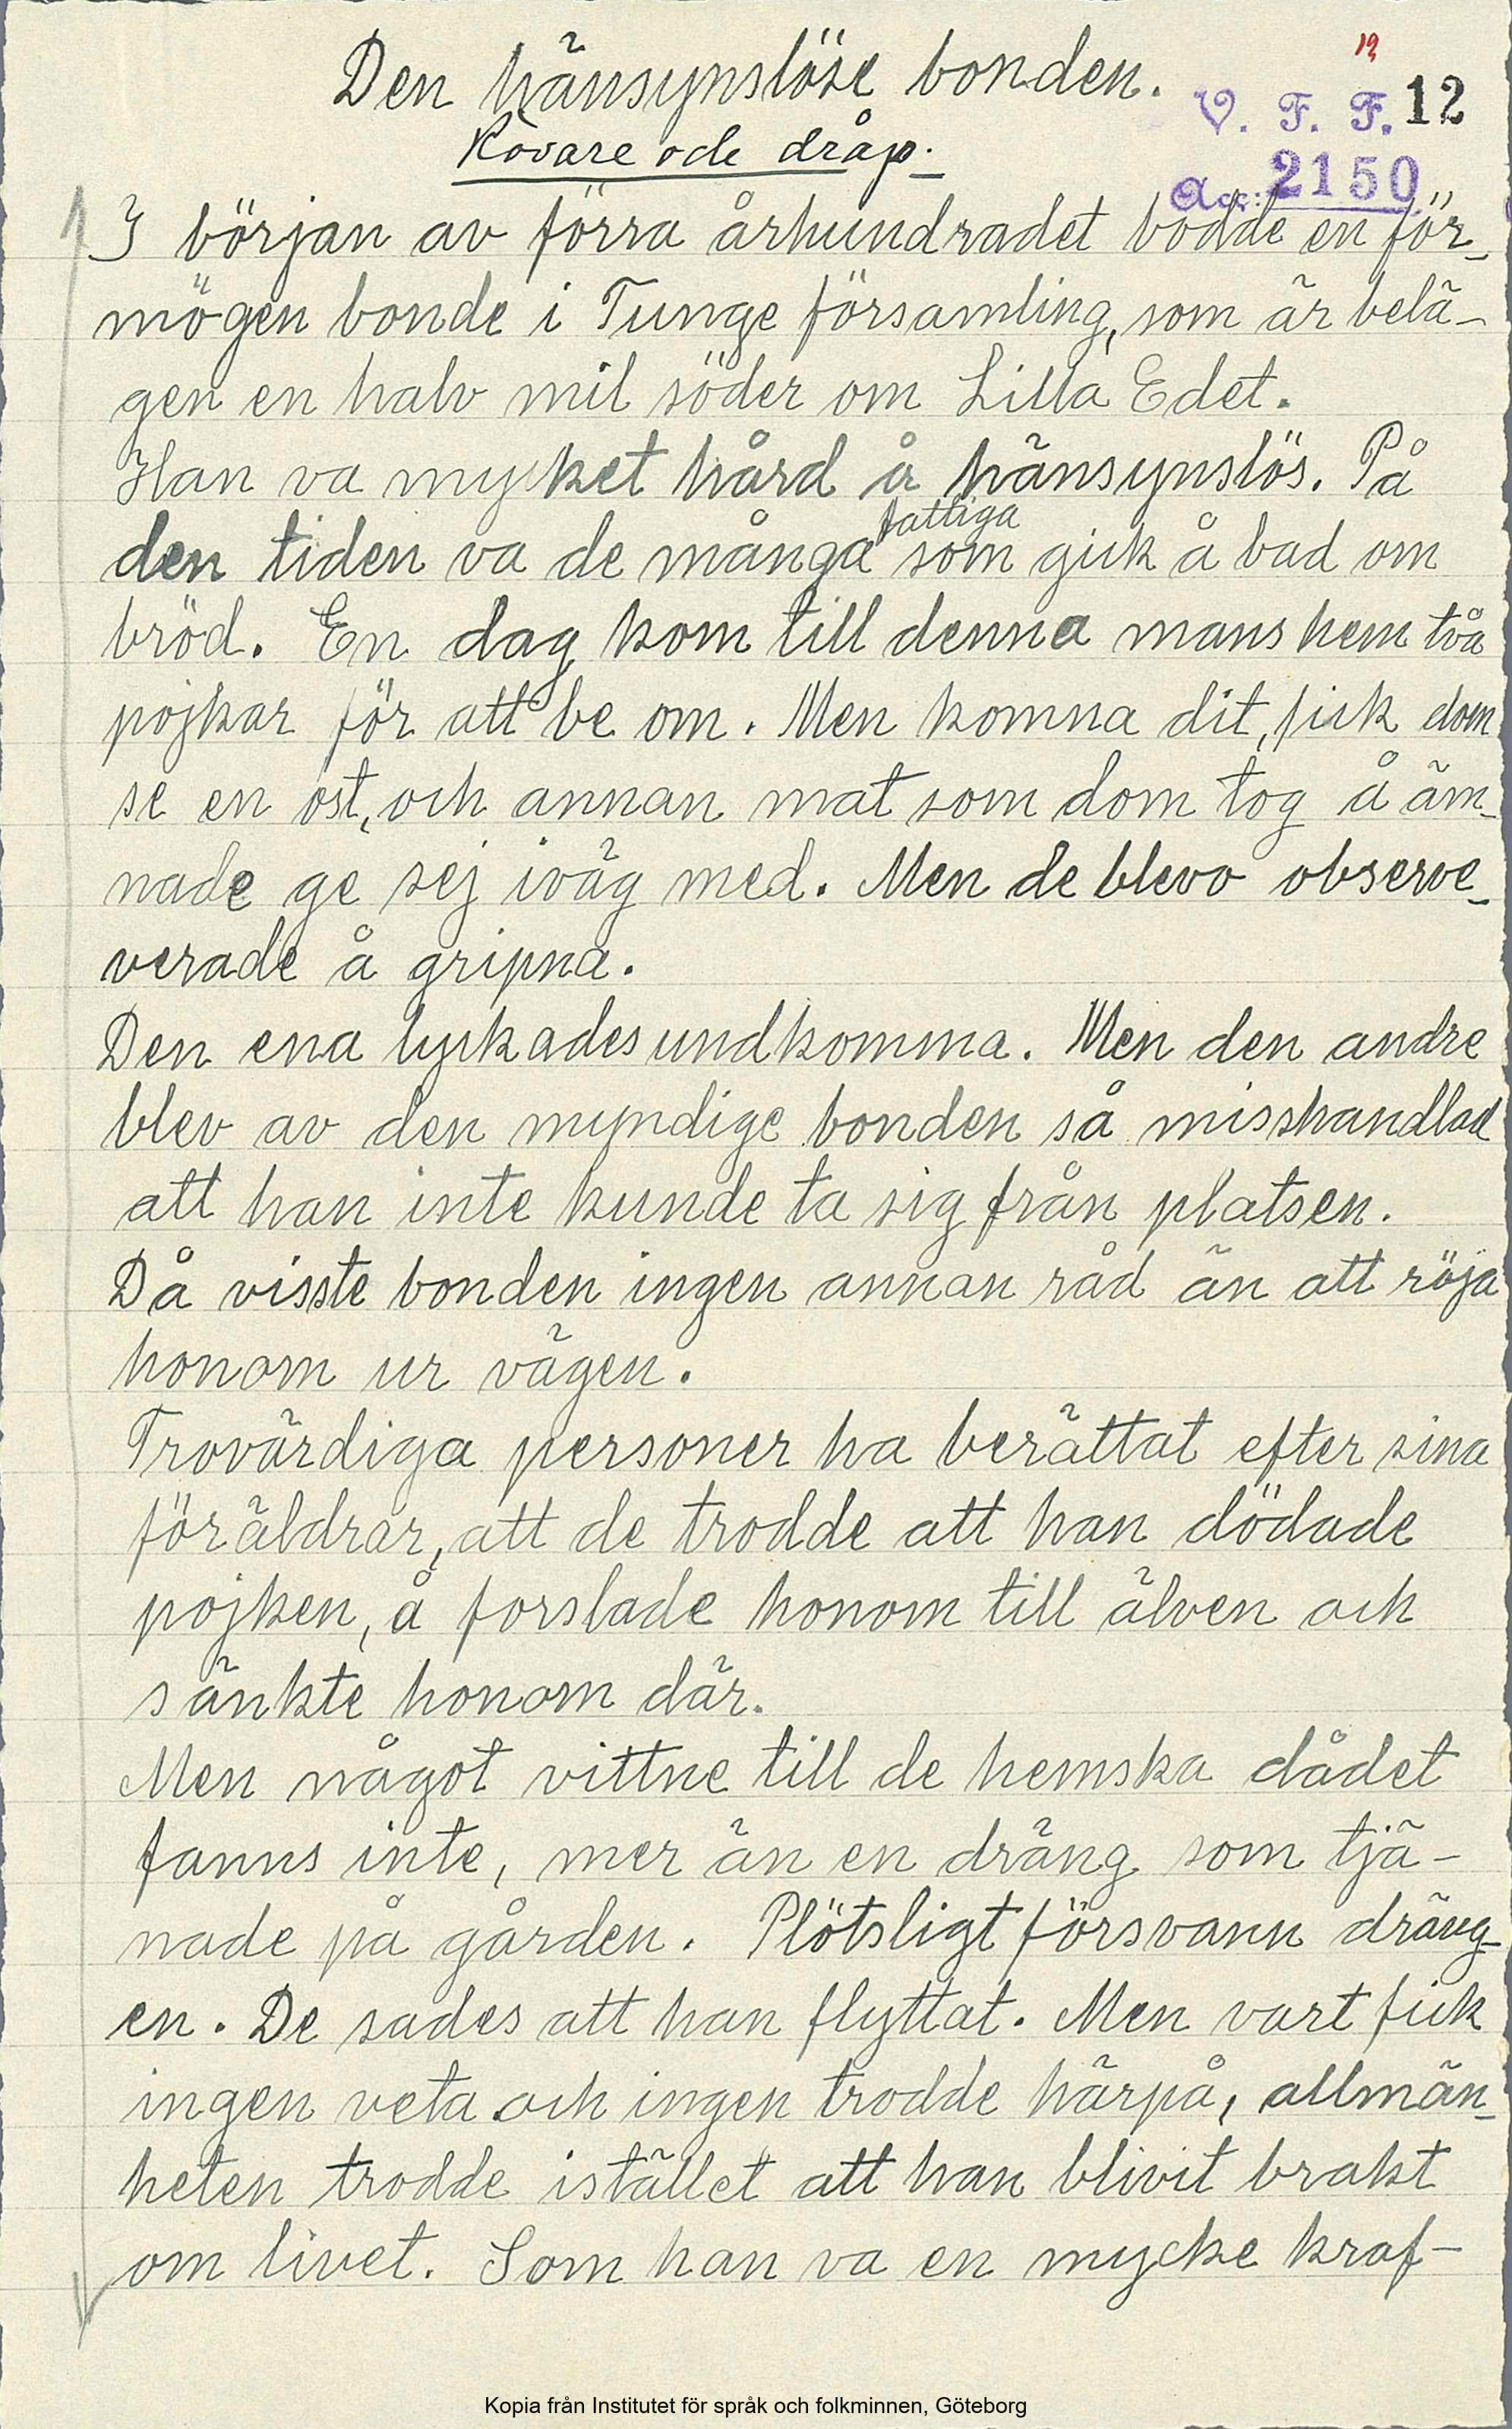 Den hänsynslöse bonden.
19
V. F. F. 12
Rövare och dråp.
Acc: 2150
I början av förra århundradet bodde en för-
mögen bonde i Tunge församling, som är belä-
gen en halv mil söder om Lilla Edet.
Han va mycket hård å hänsynslös. På
fattiga
den tiden va de många som gick å bad om
bröd. En dag kom till denna mans hem två
pojkar för att be om. Men komna dit, fick dom
se en ost, och annan mat som dom tog å äm-
nade ge sej iväg med. Men de blevo observe-
verade å gripna.
Den ena lyckades undkomma. Men den andre
blev av den myndige bonden så misshandlad
att han inte kunde ta sig från platsen.
Då visste bonden ingen annan råd än att röja
honom ur vägen.
Trovärdiga personer ha berättat efter sina
föräldrar, att de trodde att han dödade
pojken, å forslade honom till älven och
sänkte honom där.
Men något vittne till de hemska dådet
fanns inte, mer än en dräng som tjä-
nade på gården. Plötsligt försvann dräng-
en. De sades att han flyttat. Men vart fick
ingen veta och ingen trodde härpå, allmän-
heten trodde istället att han blivit brakt
om livet. Som han va en mycke kraf-
Kopia från Institutet för språk och folkminnen, Göteborg